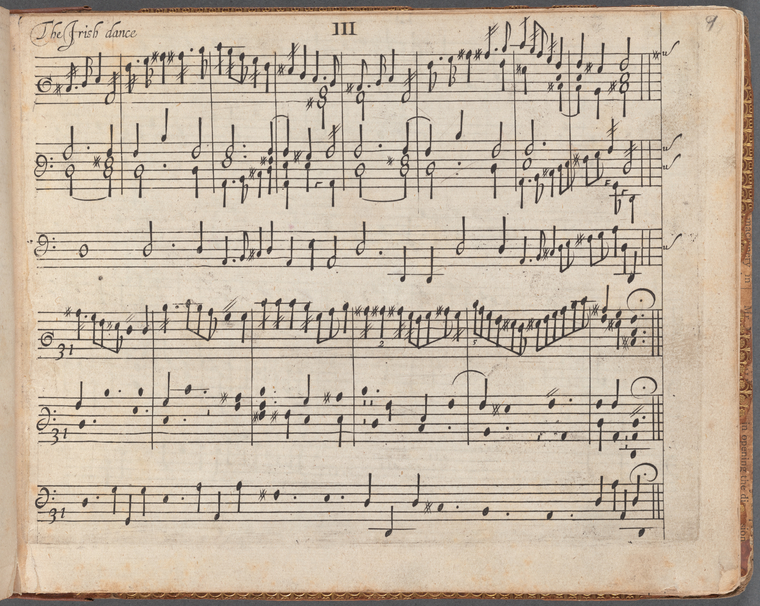 The Irish dance
III
9
31
2
5
31
31